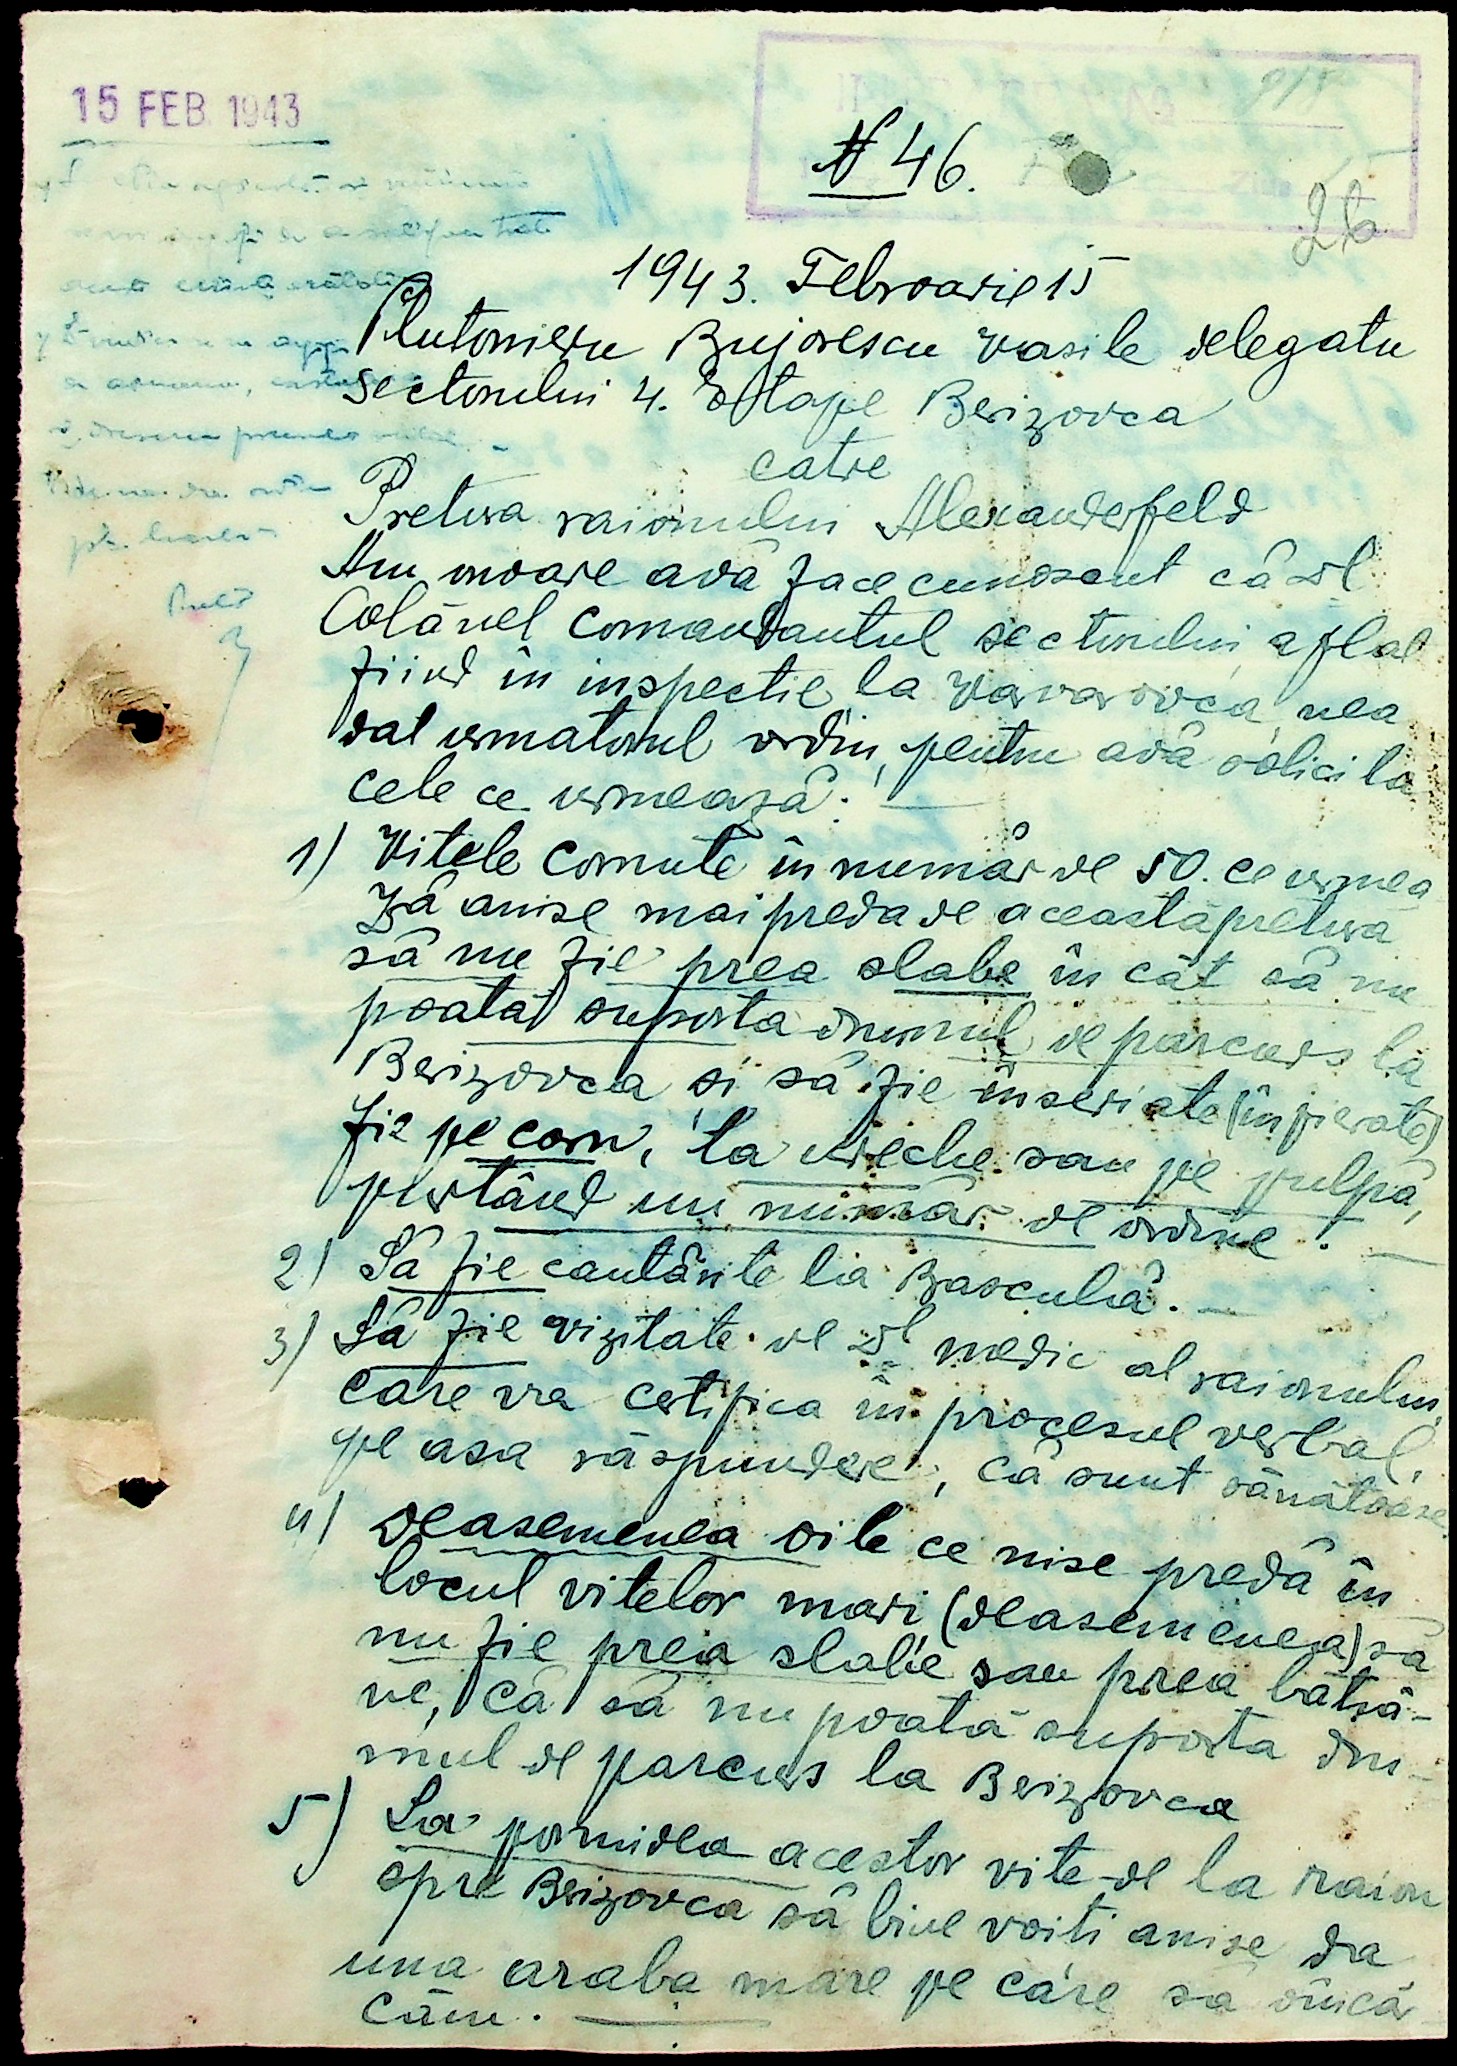 15 FEB 1943
№ 46.
26
1943. Februarie 15
Plutonieru Bujorescu Vasile delegatu
sectorului 4. Etape Berizovca
catre
Pretura raionului Alexanderfeld
Am onoare avă face cunoscut că Dl
Colănel comandantul sectorului, aflat
fiind în inspectie la Varvarovca, nea
dat urmatorul ordin, pentru avă solicita
cele ce urmează: —
1) Vitele cornute în număr de 50. ce urmea
ză anise mai preda de această pretura
să nu fie prea slabe în cât să nu
poată suporta drumul de parcurs la
Berizovca si să fie inseriate (înfierate)
fie pe corn, la ureche sau pe pulpă,
purtând un număr de ordine. —
2) Să fie cantărite la Basculă. —
3) Să fie vizitate de Dl medic al raionului,
care va certifica în procesul verbal,
pe asa răspundere, că sunt sănătoase
4) deasemenea oile ce nise predă în
locul vitelor mari, (deasemenea) să
nu fie prea slabe sau prea bătră-
ne, că să nu poată suporta dru-
mul de parcurs la Berizovca
5) La pornirea acestor vite de la raion
spre Berizovca să bine voiti anise da
una araba mare pe care să îmcăr
căm. —